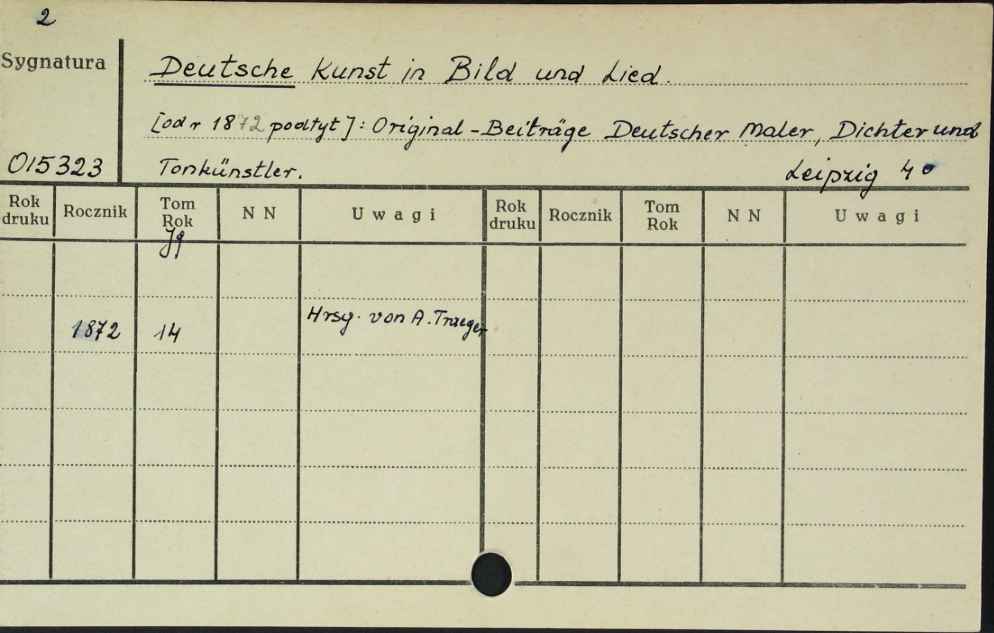 2
Sygnatura
Deutsche Kunst in Bild und Lied.
[od r 1872 podtyt]: Original-Beiträge Deutscher Maler, Dichter und
015323 Tonkünstler. Leipzig 4°
Rok druku Rocznik Tom Rok N N Uwagi Rok druku Rocznik Tom Rok N N Uwagi
Jg
1872 14 Hrsg. von A. Traeger